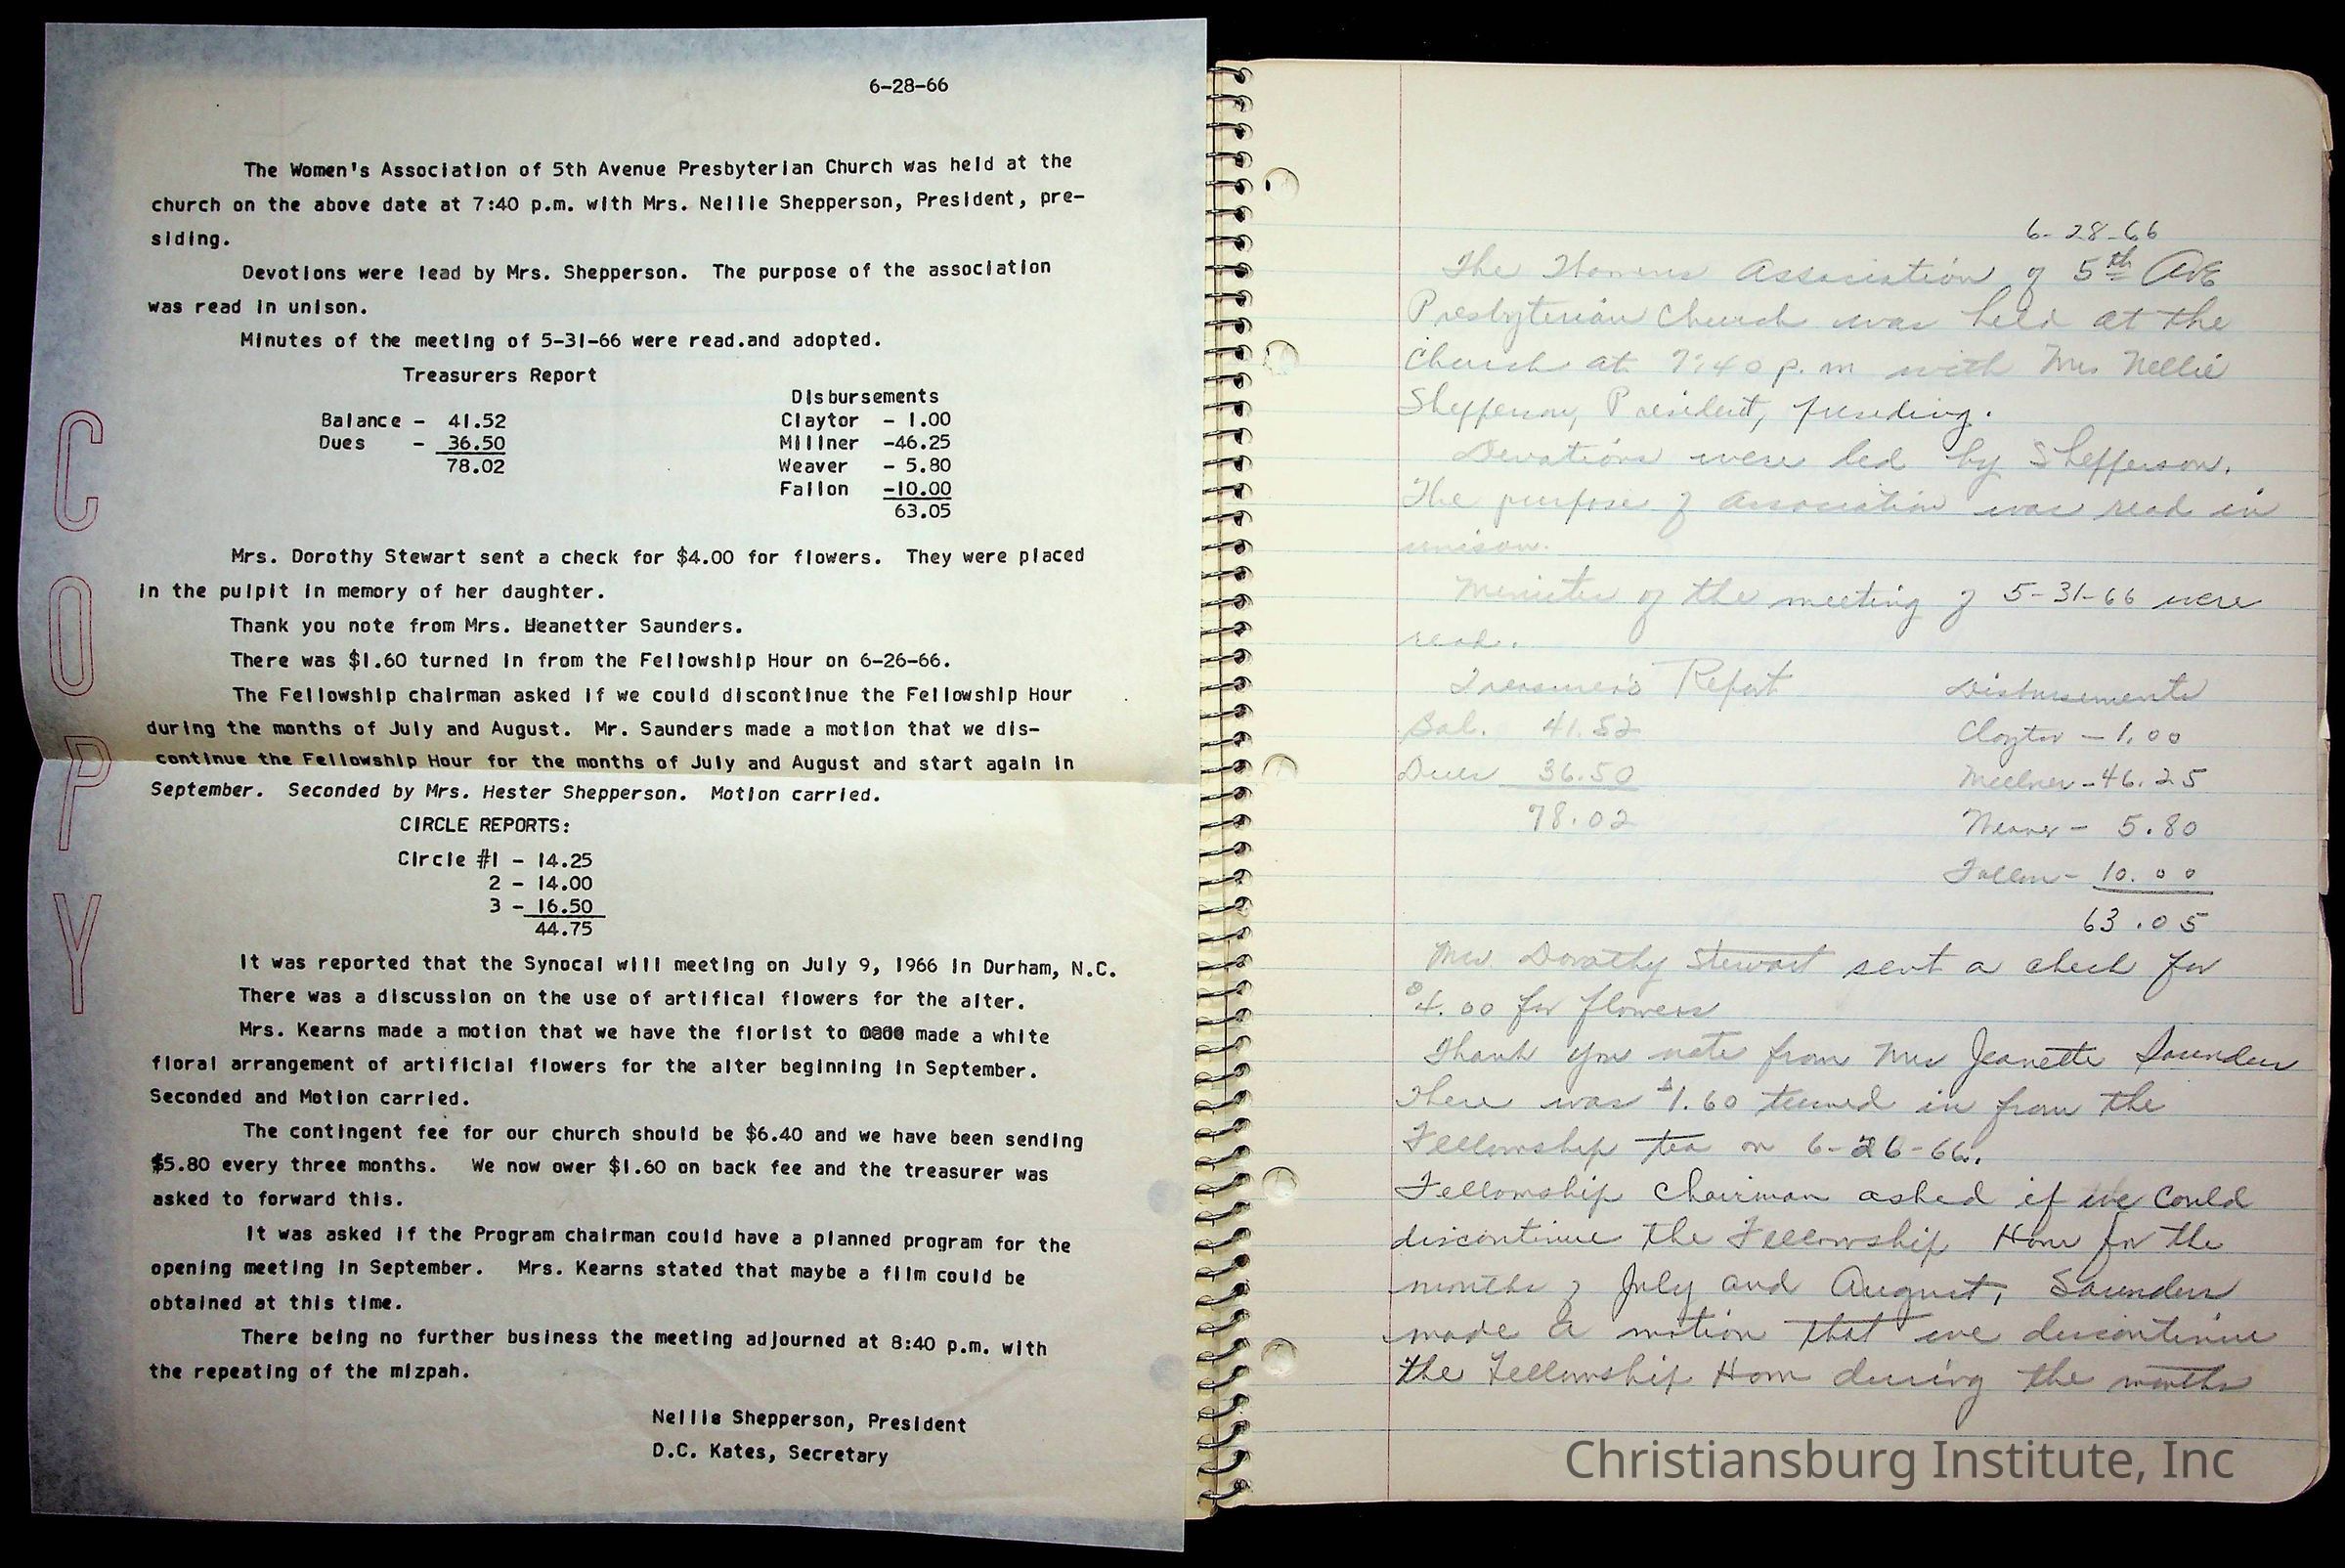 6-28-66
The Women's Association of 5th Avenue Presbyterian Church was held at the
church on the above date at 7:40 p.m. with Mrs. Nellie Shepperson, President, pre-
siding.
Devotions were lead by Mrs. Shepperson. The purpose of the association
was read in unison.
Minutes of the meeting of 5-31-66 were read.and adopted.
Treasurers Report
Disbursements
Balance - 41.52 Claytor - 1.00
Dues - 36.50 Millner -46.25
78.02 Weaver - 5.80
Fallon -10.00
63.05
Mrs. Dorothy Stewart sent a check for $4.00 for flowers. They were placed
in the pulpit in memory of her daughter.
Thank you note from Mrs. Jeanetter Saunders.
There was $1.60 turned in from the Fellowship Hour on 6-26-66.
The Fellowship chairman asked if we could discontinue the Fellowship Hour
during the months of July and August. Mr. Saunders made a motion that we dis-
continue the Fellowship Hour for the months of July and August and start again in
September. Seconded by Mrs. Hester Shepperson. Motion carried.
CIRCLE REPORTS:
Circle #1 - 14.25
2 - 14.00
3 - 16.50
44.75
It was reported that the Synocal will meeting on July 9, 1966 in Durham, N.C.
There was a discussion on the use of artifical flowers for the alter.
Mrs. Kearns made a motion that we have the florist to made a white
floral arrangement of artificial flowers for the alter beginning in September.
Seconded and Motion carried.
The contingent fee for our church should be $6.40 and we have been sending
$5.80 every three months. We now ower $1.60 on back fee and the treasurer was
asked to forward this.
It was asked if the Program chairman could have a planned program for the
opening meeting in September. Mrs. Kearns stated that maybe a film could be
obtained at this time.
There being no further business the meeting adjourned at 8:40 p.m. with
the repeating of the mizpah.
Nellie Shepperson, President
D.C. Kates, Secretary
COPY
6-28-66
The Womens Association of 5th AVE
Presbyterian Church was held at the
Church at 7:40 p.m with Mrs Nellie
Shepperson, President, presiding.
Devotions were led by Shepperson.
The purpose of Association was read in
unison.
Minutes of the meeting of 5-31-66 were
read.
Treasurer's Report Disbursements
Bal. 41.52 Claytor - 1.00
Dues 36.50 Millner - 46.25
78.02 Weaver - 5.80
Fallon - 10.00
63.05
Mrs Dorothy Stewart sent a check for
$4.00 for flowers
Thank you note from Mrs Jeanette Saunders
There was $1.60 turned in from the
Fellowship tea on 6-26-66.
Fellowship Chairman asked if we could
discontinue the Fellowship Hour for the
months of July and August, Saunders
made a motion that we discontinue
the Fellowship Hour during the months
Christiansburg Institute, Inc